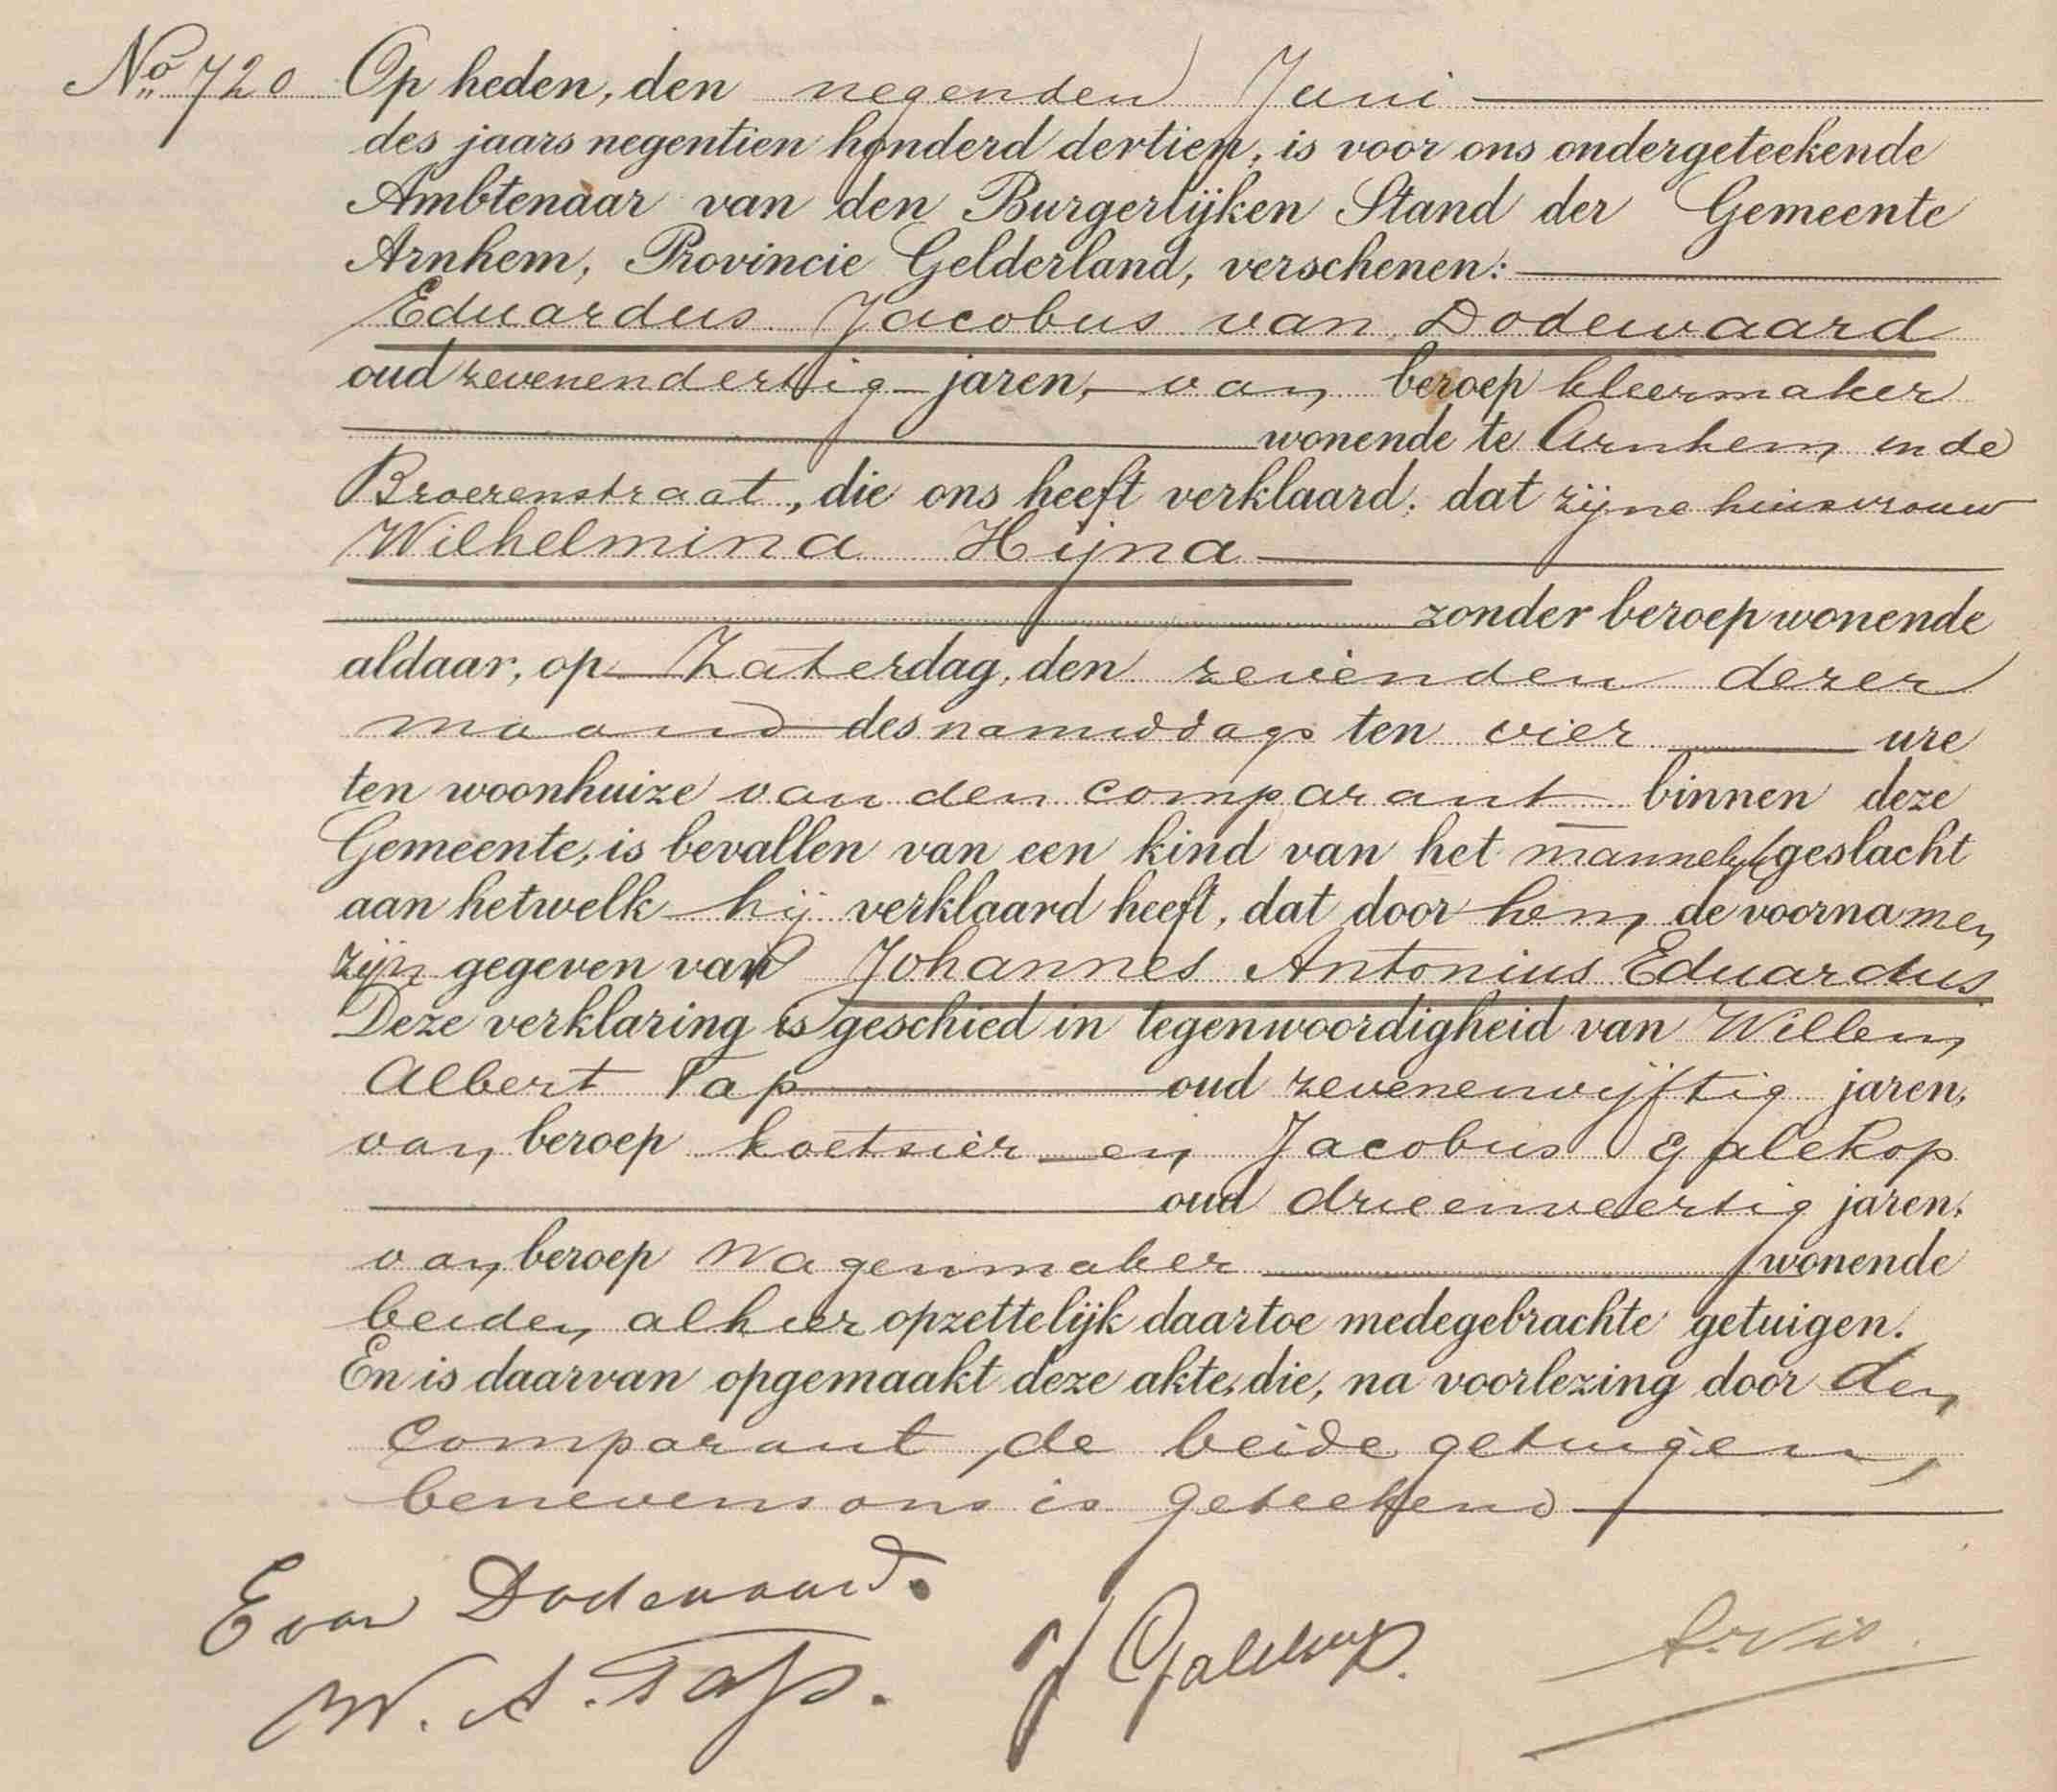 No 720 Op heden, den negenden Juni
des jaars negentien honderd dertien, is voor ons ondergeteekende
Ambtenaar van den Burgerlijken Stand der Gemeente
Arnhem, Provincie Gelderland, verschenen:
Eduardus Jacobus van Dodewaard
oud zevenendertig jaren, van beroep kleermaker
wonende te Arnhem in de
Broerenstraat, die ons heeft verklaard, dat zijne huisvrouw
Wilhelmina Hijna
zonder beroep wonende
aldaar, op Zaterdag, den zevenden dezer
maand des namiddags ten vier ure
ten woonhuize van den comparant binnen deze
Gemeente, is bevallen van een kind van het mannelijk geslacht
aan hetwelk hij verklaard heeft, dat door hem de voornamen
zijn gegeven van Johannes Antonius Eduardus
Deze verklaring is geschied in tegenwoordigheid van Willem
Albert Tap oud zevenenvijftig jaren,
van beroep koetsier en Jacobus Galekop
oud drieenveertig jaren,
van beroep wagenmaker wonende
beiden alhier opzettelijk daartoe medegebrachte getuigen.
En is daarvan opgemaakt deze akte, die, na voorlezing door den
comparant, de beide getuigen,
benevens ons is geteekend
E van Dodewaard.
W. A. Tap. J Galekop.